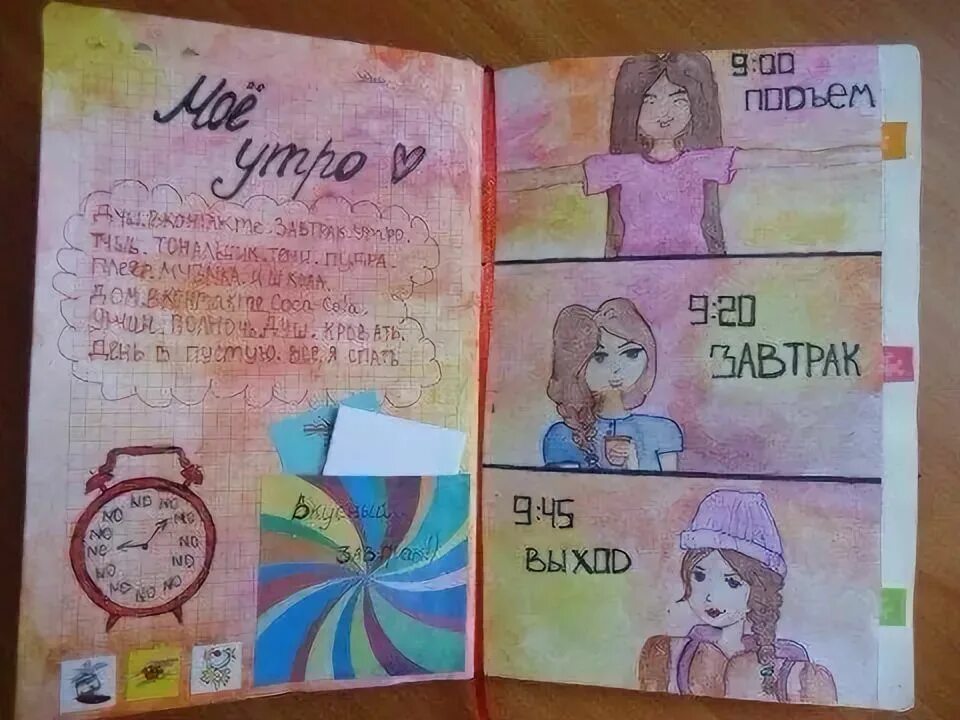 Моё
утро
Душ. вконтакте. завтрак.
тушь. тональник. тени. пудра.
плеер. музыка. и школа.
Дом. вконтакте Coca-Cola,
ужин. полночь. Душ. кровать.
День в пустую. все, я спать
NO NO NO NO NO NO NO NO NO NO NO NO
Вкусный
завтрак!!
9:00
подъем
9:20
завтрак
9:45
выход